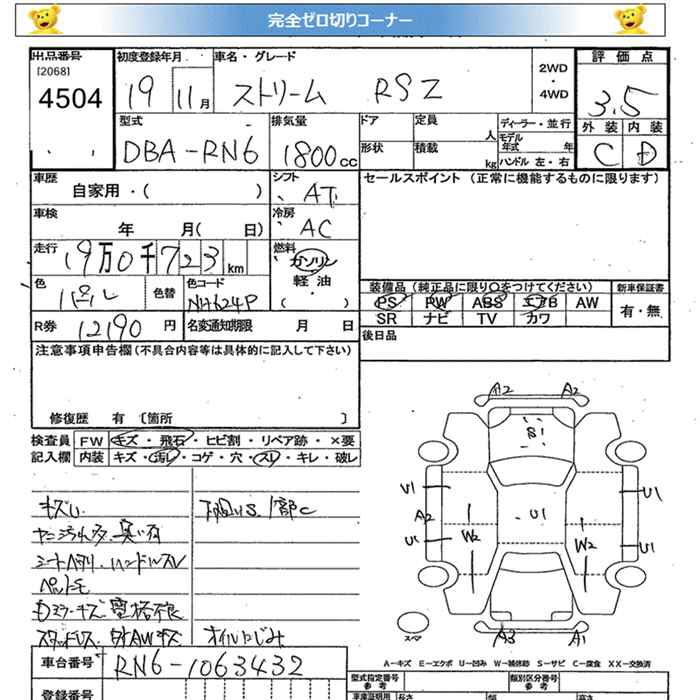 完全ゼロ切りコーナー
出品番号 初度登録年月 車名・グレード 2WD・4WD 評価点
[2068]
4504 19 11月 ストリーム RSZ 3.5
型式 排気量 ドア 定員 人 ディーラー・並行 外装 内装
DBA-RN6 1800cc 形状 積載 kg モデル年式 年 ハンドル 左・右 C D
車歴 シフト セールスポイント (正常に機能するものに限ります)
自家用・( ) AT
車検 冷房
年 月( 日) AC
走行 燃料
19万0千723km ガソリン・軽油・( )
色 色替 色コード 装備品 (純正品に限り〇をつけてください) 新車保証書
パール NH624P PS PW ABS エアB AW 有・無
SR ナビ TV カワ
R券 12190円 名変通知期限 月 日 後日品
注意事項申告欄 (不具合内容等は具体的に記入して下さい)
修復歴 有 [箇所 ]
検査員 FW キズ・飛石・ヒビ割・リペア跡・×要
記入欄 内装 キズ・汚れ・コゲ・穴・スレ・キレ・破レ
キズU 下回りS.1部C
ヤニ汚れ多 臭い有
シートA列 ハンドルスレ
ドアミラーキズ 電格不良
スタッドレス 社外AWキズ オイルにじみ
A2 A2
S1
U1 U1 U1
A2
U1 W2 W2 U1
スマ A3 A1
A-キズ E-エクボ U-凹み W-補修跡 S-サビ C-腐食 XX-交換済
車台番号 RN6-1063432
登録番号 型式指定番号 参考 類別区分番号 参考
車庫証明用 長さ 幅 高さ